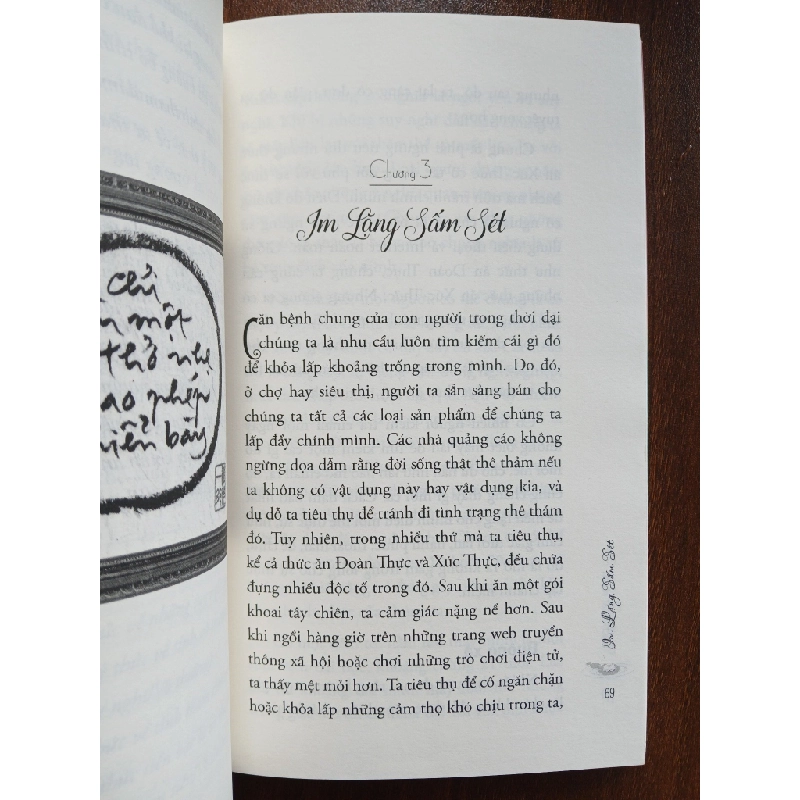 chỉ
một
thở nhẹ
phép
hiển bày
Chương 3
Im Lặng Sấm Sét
Căn bệnh chung của con người trong thời đại
chúng ta là nhu cầu luôn tìm kiếm cái gì đó
để khỏa lấp khoảng trống trong mình. Do đó,
ở chợ hay siêu thị, người ta sẵn sàng bán cho
chúng ta tất cả các loại sản phẩm để chúng ta
lấp đầy chính mình. Các nhà quảng cáo không
ngừng dọa dẫm rằng đời sống thật thê thảm nếu
ta không có vật dụng này hay vật dụng kia, và
dụ dỗ ta tiêu thụ để tránh đi tình trạng thê thảm
đó. Tuy nhiên, trong nhiều thứ mà ta tiêu thụ,
kể cả thức ăn Đoàn Thực và Xúc Thực, đều chứa
đựng nhiều độc tố trong đó. Sau khi ăn một gói
khoai tây chiên, ta cảm giác nặng nề hơn. Sau
khi ngồi hàng giờ trên những trang web truyền
thông xã hội hoặc chơi những trò chơi điện tử,
ta thấy mệt mỏi hơn. Ta tiêu thụ để cố ngăn chặn
hoặc khỏa lấp những cảm thọ khó chịu trong ta,
Im Lặng Sấm Sét
69